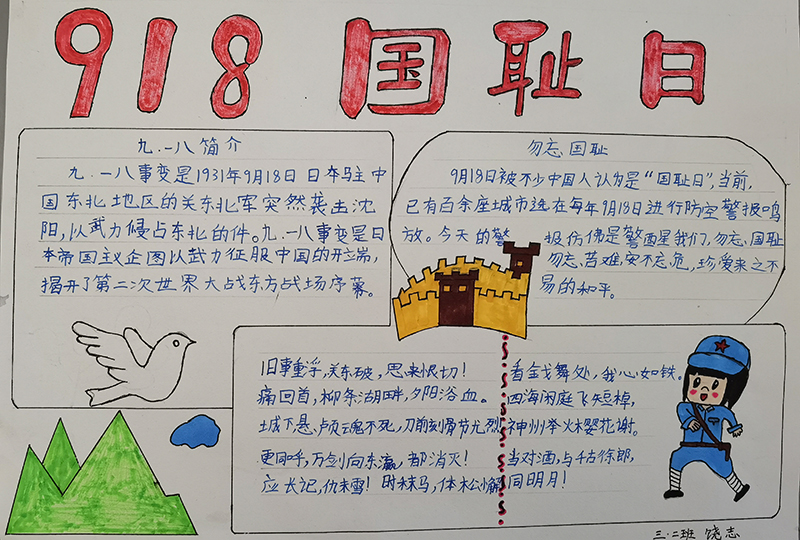 918国耻日
九.一八简介
九.一八事变是1931年9月18日日本驻中
国东北地区的关东北军突然袭击沈
阳,以武力侵占东北的件。九.一八事变是日
本帝国主义企图以武力征服中国的开端,
揭开了第二次世界大战东方战场序幕。
勿忘国耻
9月18日被不少中国人认为是“国耻日”,当前,
已有百余座城市选在每年9月18日进行防空警报鸣
放。今天的警报仿佛是警醒我们,勿忘国耻
勿忘苦难,安不忘危,珍爱来之不
易的和平。
旧事重浮,关东破,思来恨切!
痛回首,柳条湖畔,夕阳浴血。
土城下悬卢灵魂不死,刀前刻骨节尤烈
更呼,万剑向东瀛,都消灭!
应长记,仇未雪!时秣马,体松懈
看金戈舞处,我心如铁。
四海闲庭飞短棹,
神州举火樱花谢。
当对酒,与千古徐郎,
同明月!
三.二班 饶志